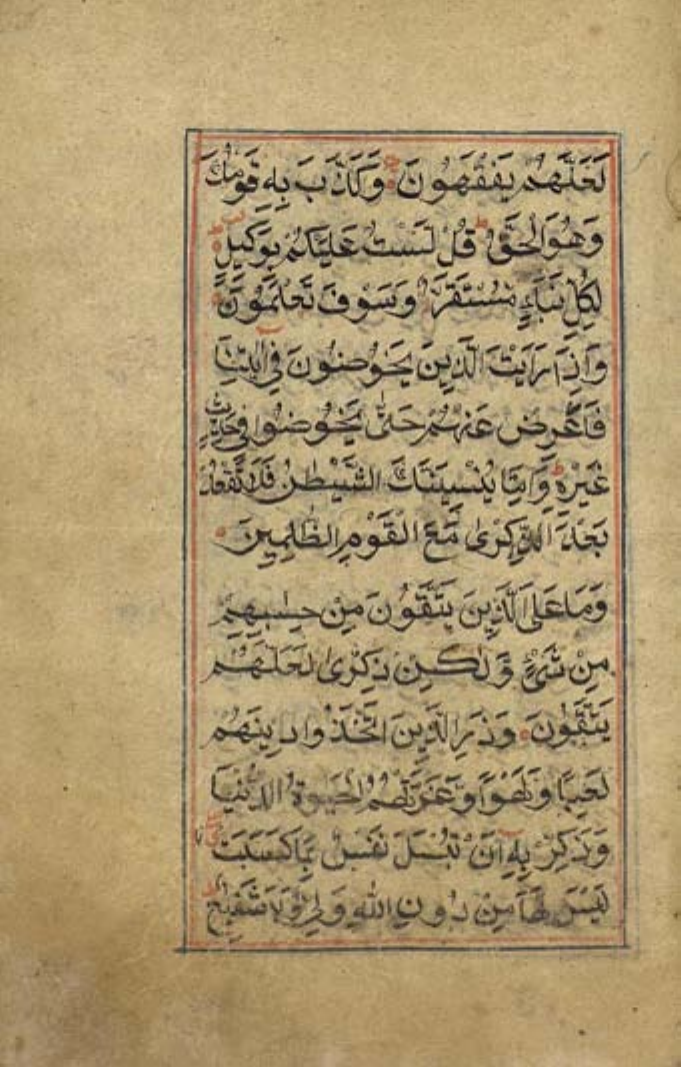 لَعَلَّهُمْ يَفْقَهُونَ وَكَذَّبَ بِهِ قَوْمُكَ
وَهُوَ الْحَقُّ قُلْ لَسْتُ عَلَيْكُمْ بِوَكِيلٍ
لِكُلِّ نَبَإٍ مُسْتَقَرٌّ وَسَوْفَ تَعْلَمُونَ
وَإِذَا رَأَيْتَ الَّذِينَ يَخُوضُونَ فِي آيٰتِنَا
فَأَعْرِضْ عَنْهُمْ حَتَّى يَخُوضُوا فِي حَدِيثٍ
غَيْرِهِ وَإِمَّا يُنْسِيَنَّكَ الشَّيْطٰنُ فَلَا تَقْعُدْ
بَعْدَ الذِّكْرَى مَعَ الْقَوْمِ الظّٰلِمِينَ
وَمَا عَلَى الَّذِينَ يَتَّقُونَ مِنْ حِسَابِهِمْ
مِنْ شَيْءٍ وَلٰكِنْ ذِكْرَى لَعَلَّهُمْ
يَتَّقُونَ وَذَرِ الَّذِينَ اتَّخَذُوا دِينَهُمْ
لَعِبًا وَلَهْوًا وَغَرَّتْهُمُ الْحَيٰوةُ الدُّنْيَا
وَذَكِّرْ بِهِ أَنْ تُبْسَلَ نَفْسٌ بِمَا كَسَبَتْ
لَيْسَ لَهَا مِنْ دُونِ اللهِ وَلِيٌّ وَلَا شَفِيعٌ